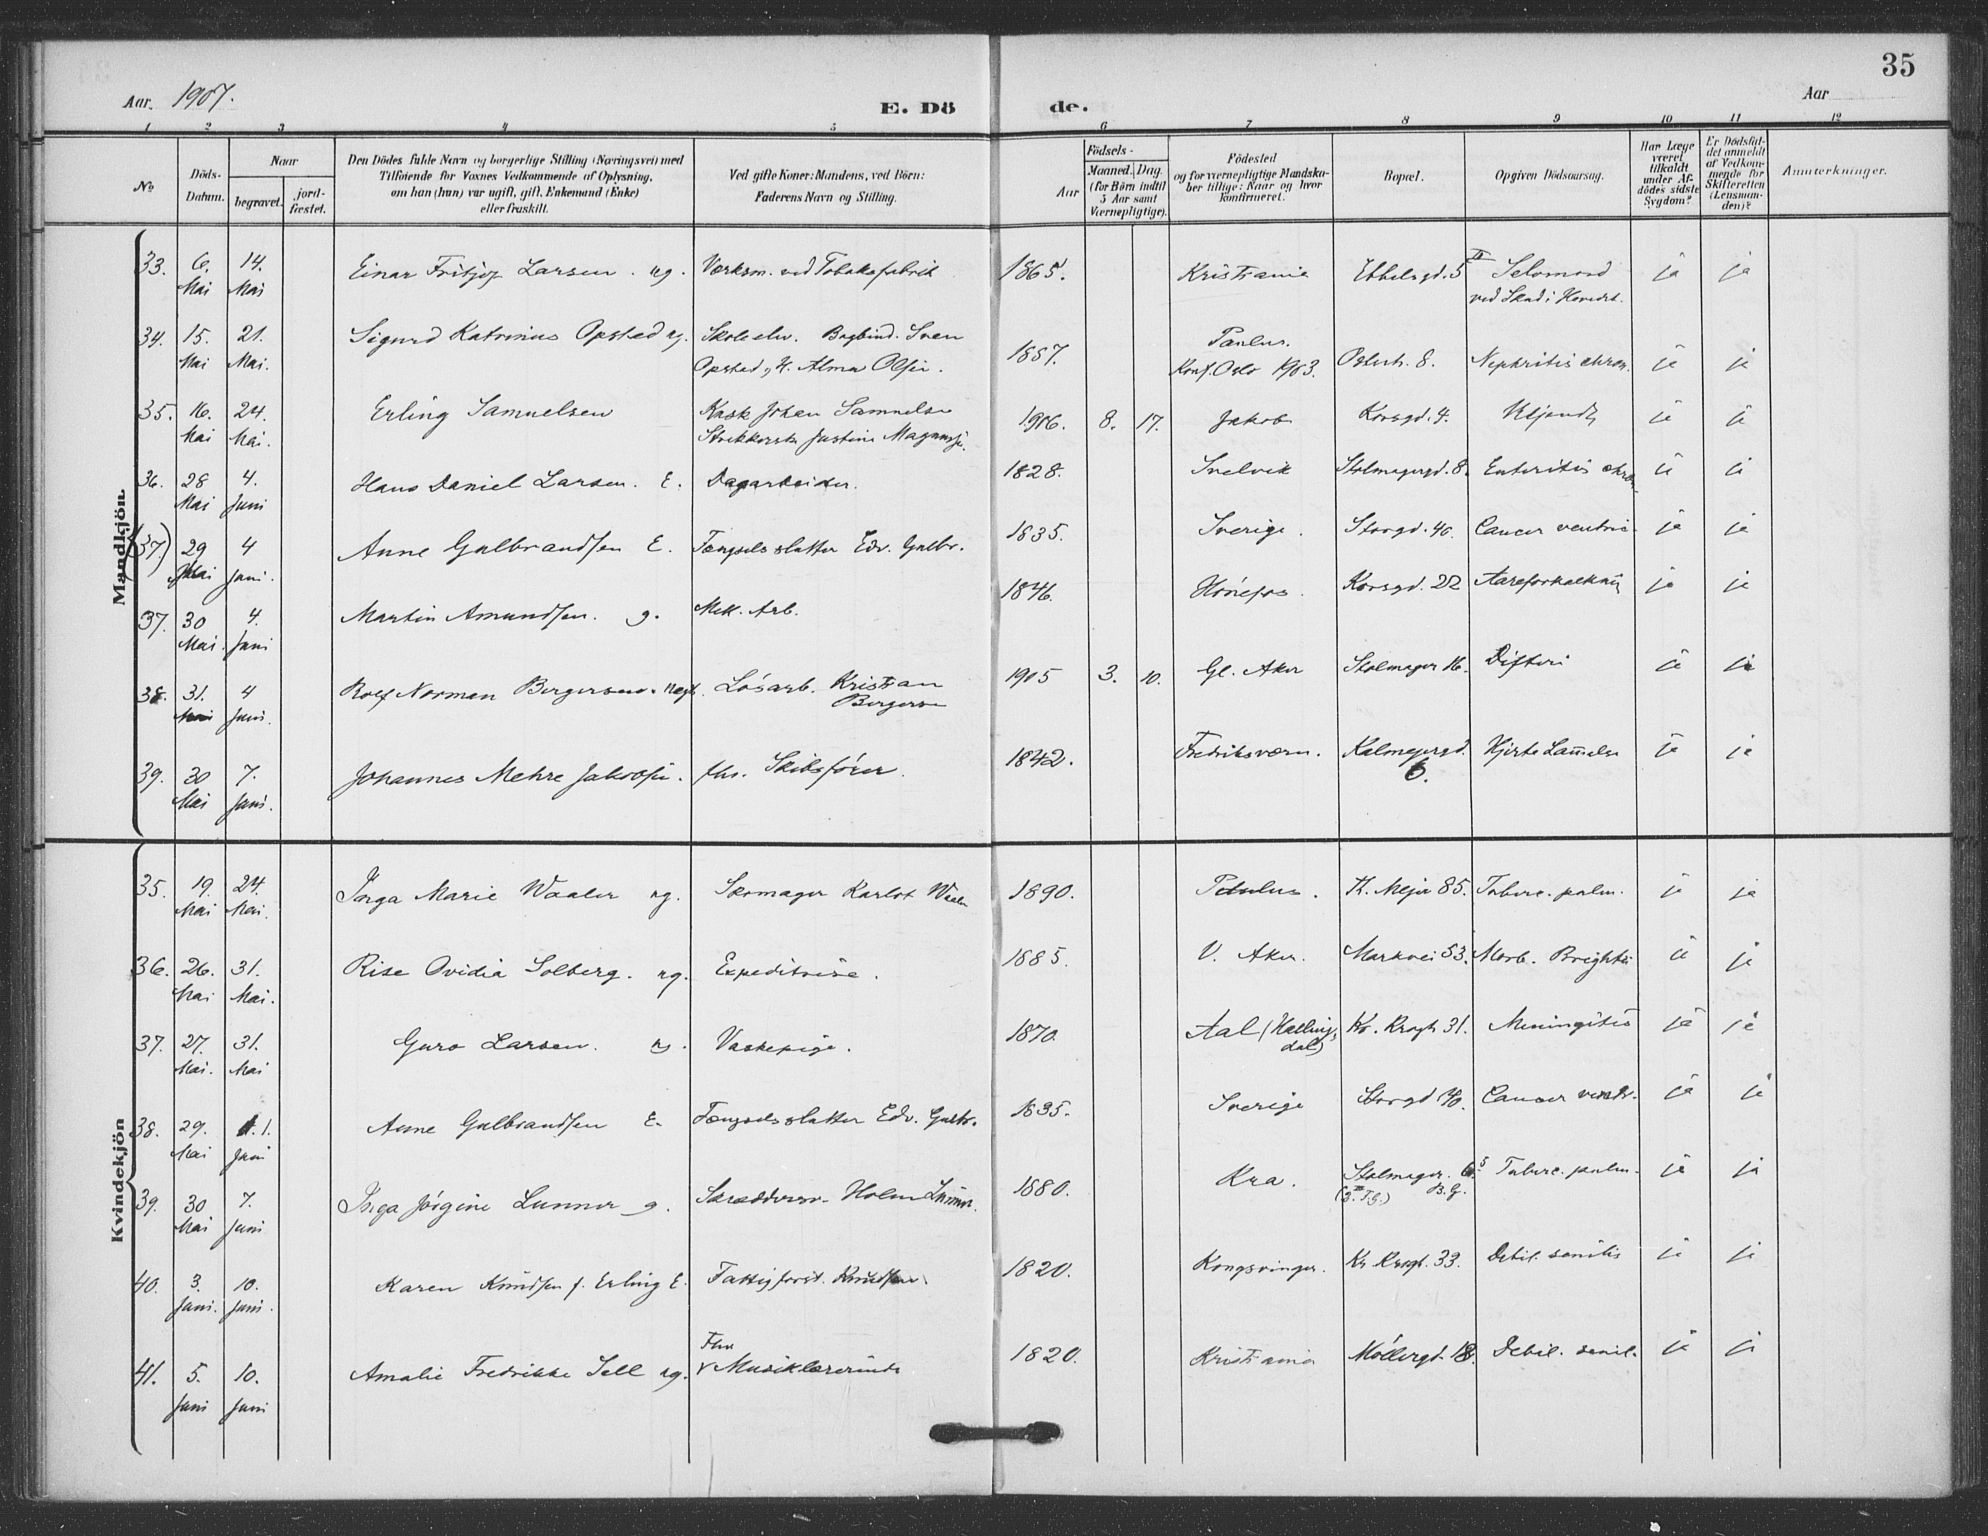 35
Aar. 1907.
E. Dö de.
Aar
1 2 3 4 5 6 7 8 9 10 11 12
No
Döds-Datum.
Naar
begravet.
jord-fæstet.
Den Dödes fulde Navn og borgerlige Stilling (Næringsvei) med
Tilföiende for Voxnes Vedkommende af Oplysning,
om han (hun) var ugift, gift, Enkemand (Enke)
eller fraskilt.
Ved gifte Koner: Mandens, ved Börn:
Faderens Navn og Stilling.
Födsels-
Aar
Maaned. Dag.
(for Börn indtil
5 Aar samt
Værnepligtige).
Födested
og for værnepligtige Mandska-
ber tillige: Naar og hvor
konfirmeret.
Bopæl.
Opgiven Dödsaarsag.
Har Læge
været
tilkaldt
under Af-
dödes sidste
Sygdom?
Er Dödsfal-
det anmeldt
af Vedkom-
mende for
Skifteretten
(Lensman-
den)?
Anmærkninger.
Mandkjön.
33. 6. Mai 14. Mai Einar Fritjof Larsen. ug. Værksm. ved Tobaksfabrik 1865. Kristiania Ebbelsgd. 5 II Selvmord
ved Skud i Hovedet. ja ja
34. 15. Mai 21. Mai. Sigurd Katrinus Opsted ug. Skoleelev. Bogbind. Sven
Opsted, H. Alma Olsen. 1887. Paulus.
Konf. Oslo 1903. Peterst. 8. Nephritis chron. ja ja
35. 16. Mai 24. Mai. Erling Samuelsen Kusk Johan Samuelsen
Strikkersk Justine Magnussen. 1906. 8. 17. Jakob Korsgd. 4. ja ja
36. 28 Mai 4. Juni Hans Daniel Larsen. E. Dagarbeider. 1828. Svelvik Stolmagergd. 8. Enteritis chron. ja ja
(37) 29 Mai 4 Juni. Anne Gulbrandsen E. Fængselsslutter Edv. Gulbr. 1835. Sverige. Storgd. 40. Cancer ventric. ja ja
37. 30 Mai. 4. Juni Martin Amundsen. g. Mek. Arb. 1846. Hönefos. Korsgd. 22 Aareforkalkning ja ja
38. 31. Mai 4 Juni. Rolf Norman Bergersen. Lösarb. Kristian
Bergersen 1905 3. 10. Gl. Aker Stolmager 16. Difteri ja ja
39. 30 Mai 7. Juni. Johannes Mehre Jakobsen. fhv. Skibsförer. 1842. Fredriksværn. Kalmeyergd.
6. Hjertelammelse ja ja
Kvindekjön
35. 19. Mai 24. Mai. Inga Marie Waaler ug. Skomager Karlot Waaler 1890. Paulus. Th. Mejer 85. Tuberc. pulm. ja ja
36. 26. Mai 31. Mai. Rise Ovidia Solberg. ug. Expeditrise. 1885. V. Aker. Markvei 53. Morb. Brightii ja ja
37. 27. Mai. 31. Mai Guro Larsen. ug. Vaskepige. 1870. Aal (Halling-
dal) Kr. Krogh 31. Meningitis ja ja
38. 29. Mai 1. Juni Anne Gulbrandsen E. Fængselsslutter Edv. Gulbr. 1835. Sverige Storgd 40. Cancer ventr. ja ja
39. 30 Mai 7. Juni Inga Jörgine Lunner g. Skræddersv. Holm Lunner. 1880. Kra. Stolmager. 6.
B.G. Tuberc. pulm. ja ja
40. 3. Juni. 10. Juni. Karen Knudsen f. Erling E. Fattigforst. Knudsen 1820. Kongsvinger. Kr Krogh. 33. Debil. senilis ja ja
41. 5. Juni 10. Juni Amalie Fredrikke Sell ug. Fhv
Musiklærerinde 1820. Kristiania Möllergd. 18. Debil. senil. ja ja